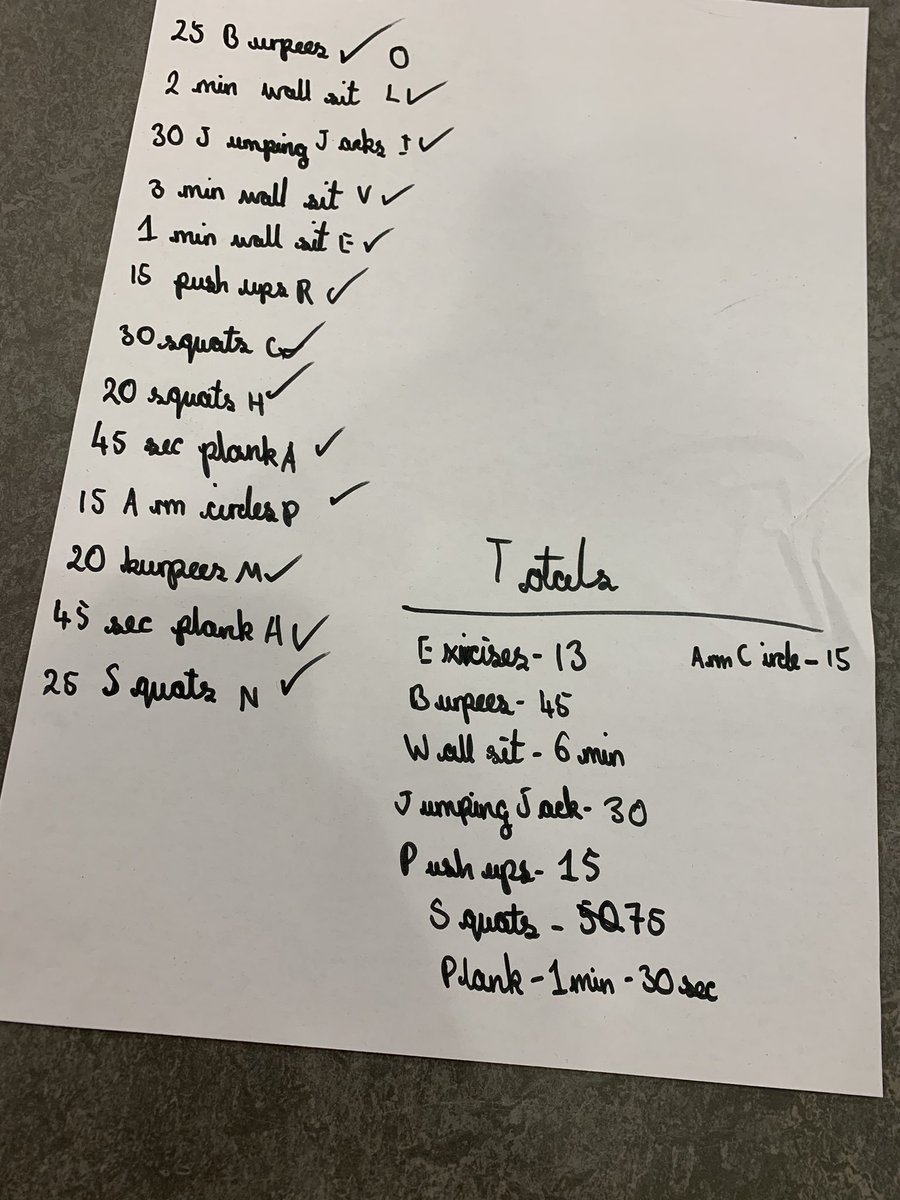 25 Burpees ✓ O
2 min wall sit L ✓
30 Jumping Jacks I ✓
3 min wall sit V ✓
1 min wall sit E ✓
15 push ups R ✓
30 squats C ✓
20 squats H ✓
45 sec plank A ✓
15 Arm circles P ✓
20 burpees M ✓
45 sec plank A ✓
25 Squats N ✓
Totals
Exircises - 13
Arm Circle - 15
Burpees - 45
Wall sit - 6 min
Jumping Jack - 30
Push ups - 15
Squats - 50 75
Plank - 1 min - 30 sec